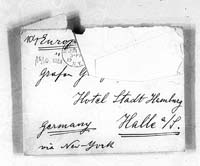 via Europ
Grafen G
Hotel Stadt Hamburg
Germany Halle a/S.
via New-York